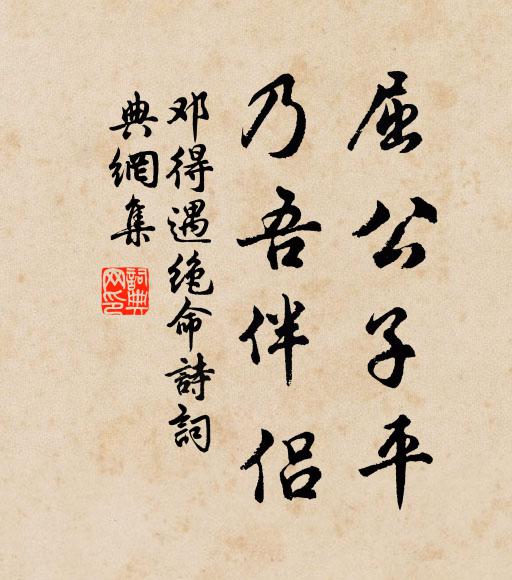 屈公子平
乃吾伴侣
邓得遇绝命詩詞
典網集
詞典網印